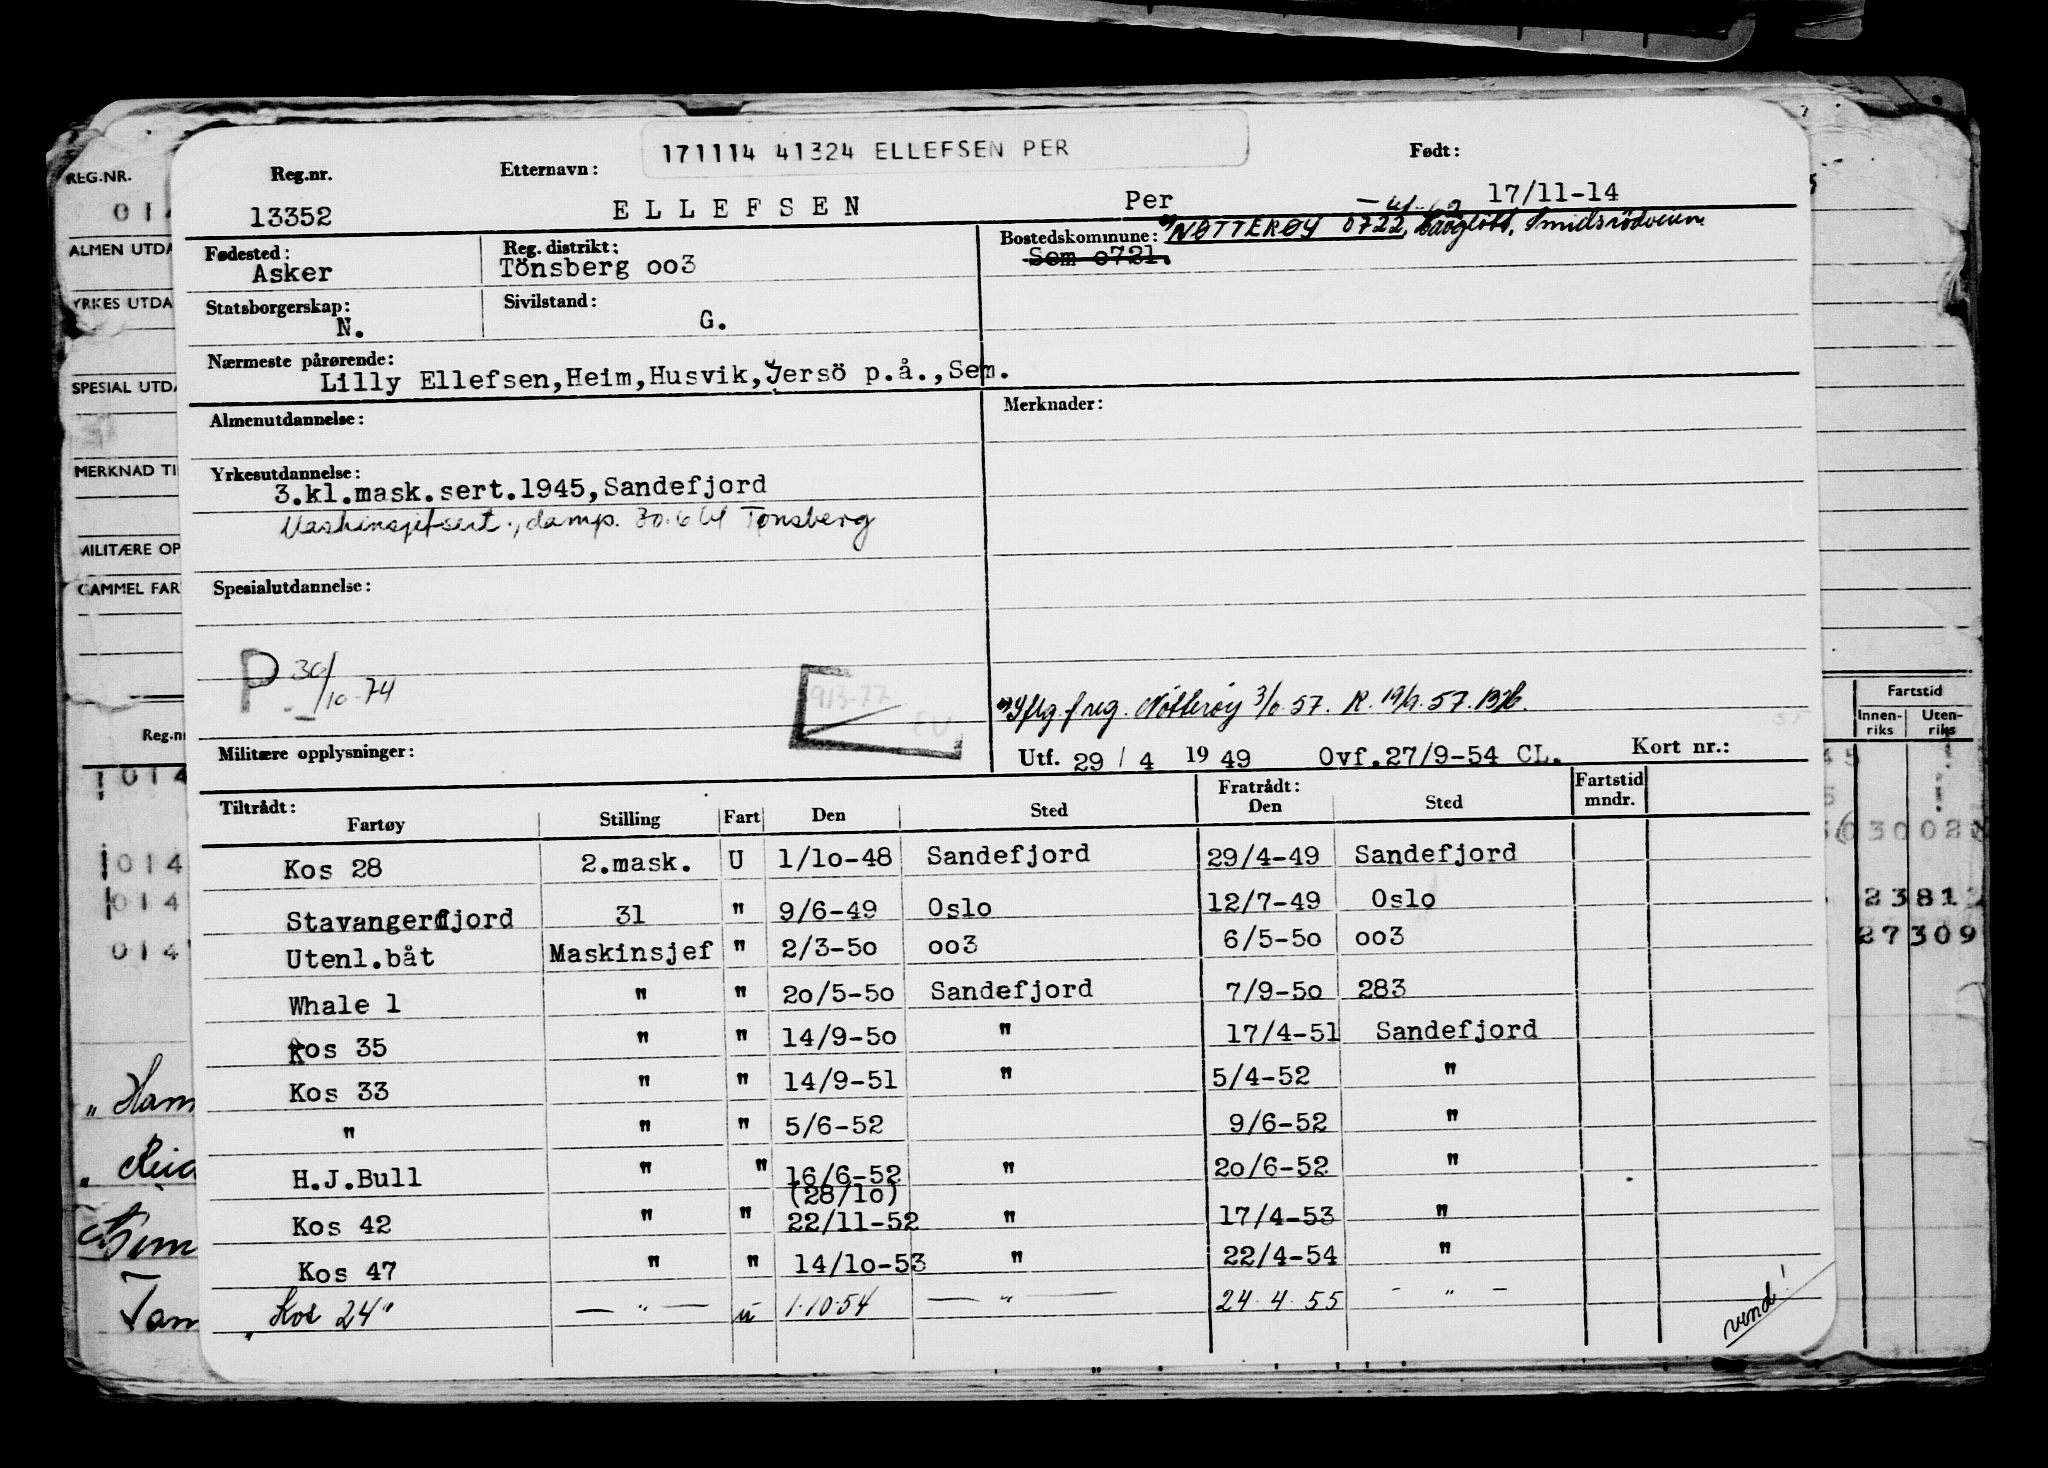 171114 41324 ELLEFSEN PER
Reg.nr. Etternavn: Født:
13352 ELLEFSEN Per 17/11-14
Fødested: Reg. distrikt: Bostedskommune: NØTTERØY 0722,
Asker Tönsberg oo3 Sem o721.
Statsborgerskap: Sivilstand:
N. G.
Nærmeste pårørende:
Lilly Ellefsen,Heim,Husvik,Jersö p.å.,Sem.
Almenutdannelse: Merknader:
Yrkesutdannelse:
3.kl.mask.sert.1945,Sandefjord
Maskinsjefsert., damp. 30.6.61 Tønsberg
Spesialutdannelse:
P 30/10-74
913-77
EU
Iflg. freg. Nøtterøy
Militære opplysninger: Utf. 29 / 4 19 49 Ovf.27/9-54 CL. Kort nr.:
Tiltrådt: Fratrådt: Fartstid
Fartøy Stilling Fart Den Sted Den Sted mndr.
Kos 28 2.mask. U 1/1o-48 Sandefjord 29/4-49 Sandefjord
Stavangerfjord 31 " 9/6-49 Oslo 12/7-49 Oslo
Utenl.båt Maskinsjef " 2/3-5o oo3 6/5-5o oo3
Whale 1 " " 2o/5-5o Sandefjord 7/9-5o 283
Kos 35 " " 14/9-5o " 17/4-51 Sandefjord
Kos 33 " " 14/9-51 " 5/4-52 "
" " " 5/6-52 9/6-52 "
H.J.Bull " " 16/6-52 " 2o/6-52 "
(28/1o)
Kos 42 " " 22/11-52 " 17/4-53 "
Kos 47 " " 14/1o-53 " 22/4-54 "
"Kos 24" — " — u 1.10.54 — " — 24.4.55 - " -
vend!
REG.NR.
014
ALMEN UTDA
YRKES UTDA
SPESIAL UTDA
MERKNAD TI
MILITÆRE OP
GAMMEL FAR
Reg.nr
014
014
014
014
Fartstid
Innen-riks Uten-riks
23812
27309